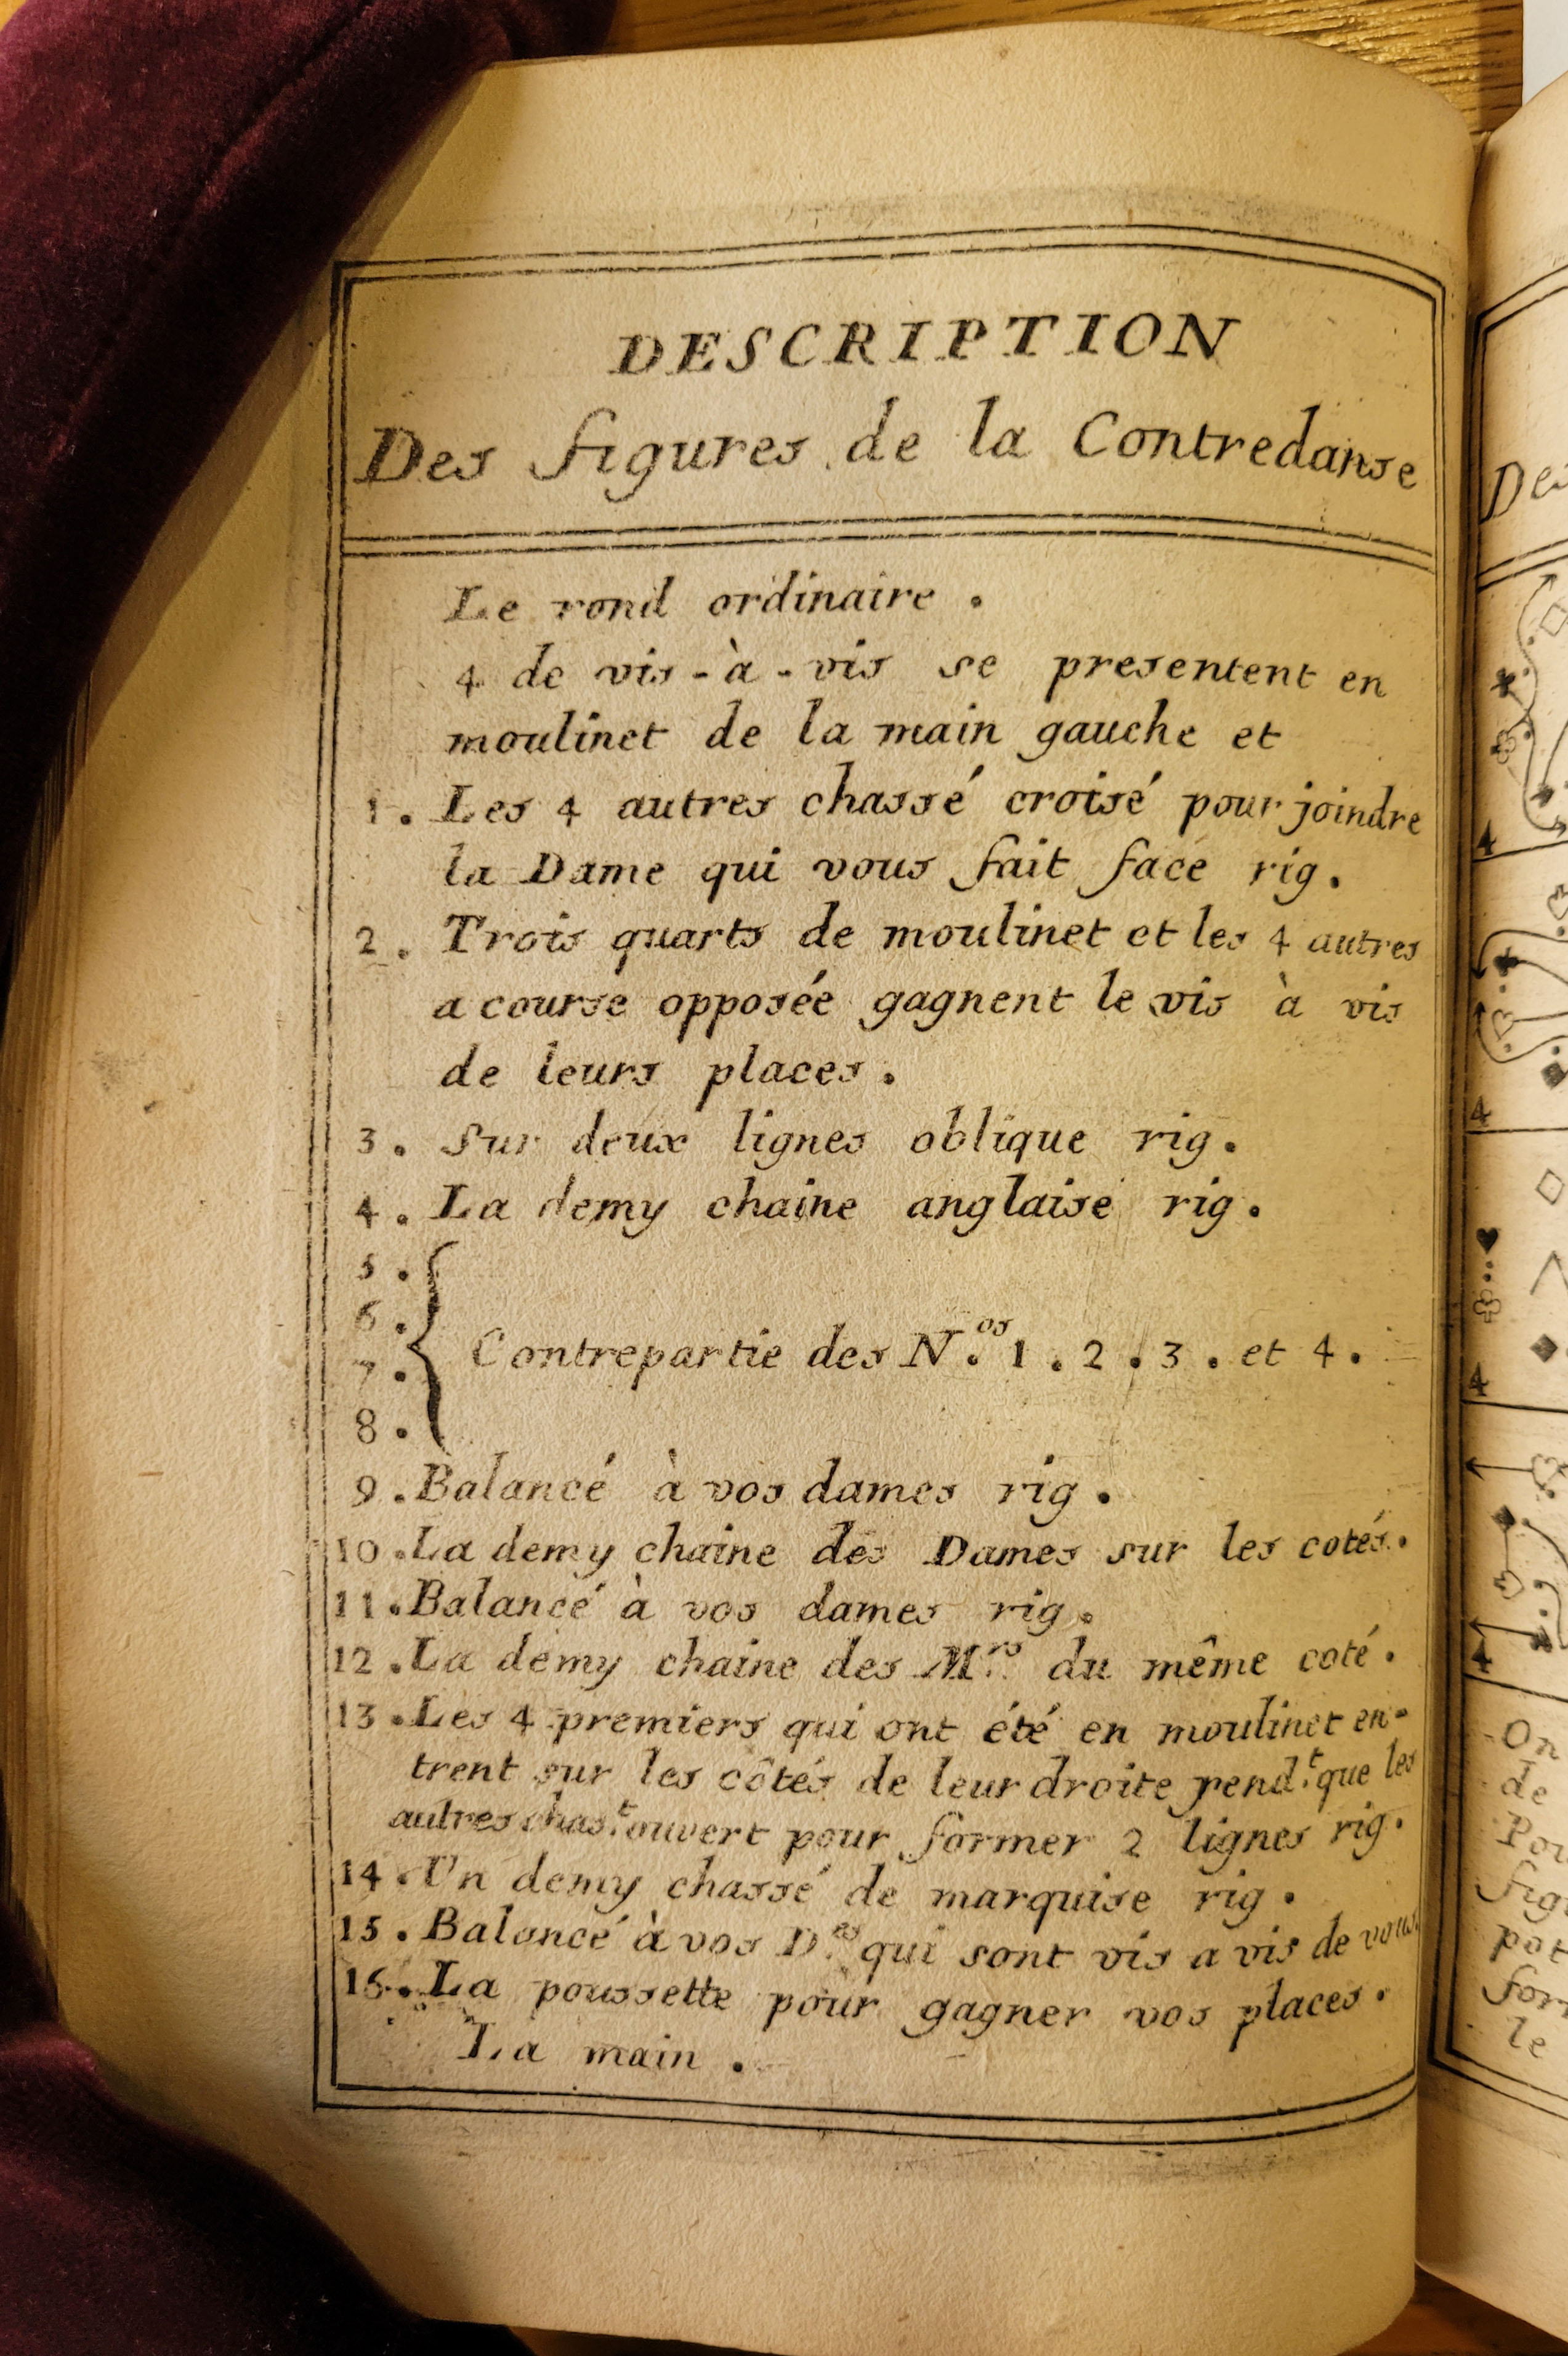 DESCRIPTION
Des figures de la Contredanse
Le rond ordinaire .
4 de vis-à-vis se presentent en
moulinet de la main gauche et
1. Les 4 autres chassé croisé pour joindre
la Dame qui vous fait face rig.
2. Trois quarts de moulinet et les 4 autres
a course opposée gagnent le vis à vis
de leurs places.
3. Sur deux lignes oblique rig.
4. La demy chaine anglaise rig.
5.
6.
7.
8.
Contrepartie des N.os 1. 2. 3. et 4.
9. Balancé à vos dames rig.
10. La demy chaine des Dames sur les cotés.
11. Balancé à vos dames rig.
12. La demy chaine des M.rs du même coté.
13. Les 4 premiers qui ont été en moulinet en-
trent sur les côtés de leur droite pend.t que les
autres chas.t ouvert pour former 2 lignes rig.
14. Un demy chassé de marquise rig.
15. Balancé à vos D.es qui sont vis a vis de vous.
16. La poussette pour gagner vos places.
La main.
4
4
4
4
On
de
le